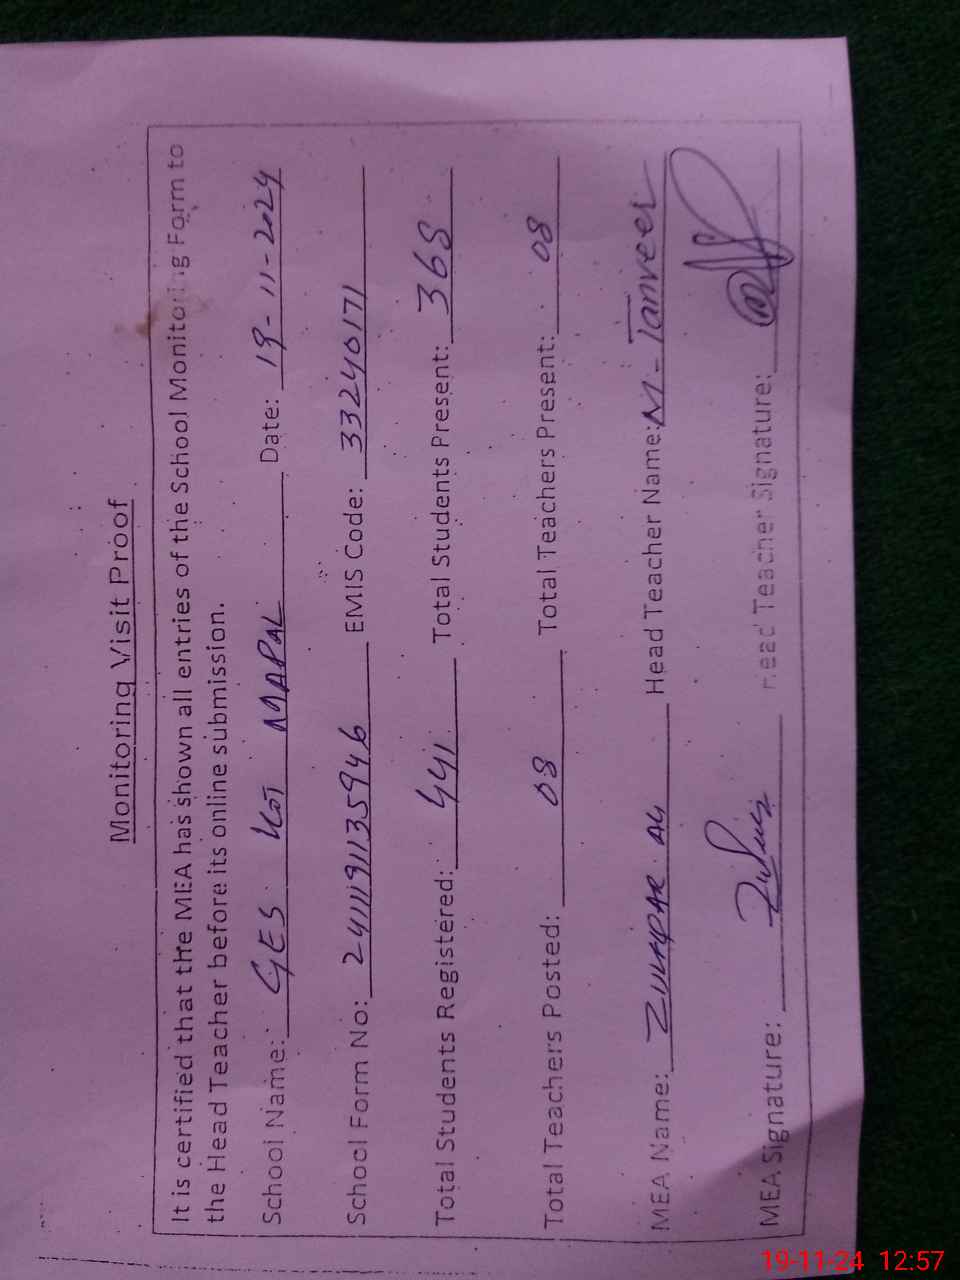 Monitoring Visit Proof
It is certified that the MEA has shown all entries of the School Monitoring Form to
the Head Teacher before its online submission.
School Name: GES Kot MAPAL Date: 19-11-2024
School Form No: 2411191135946 EMIS Code: 33240171
Total Students Registered: 441 Total Students Present: 368
Total Teachers Posted: 08 Total Teachers Present: 08
MEA Name: ZULFIQAR ALI Head Teacher Name: M-Tanveer
MEA Signature: Head Teacher Signature:
19-11-24 12:57